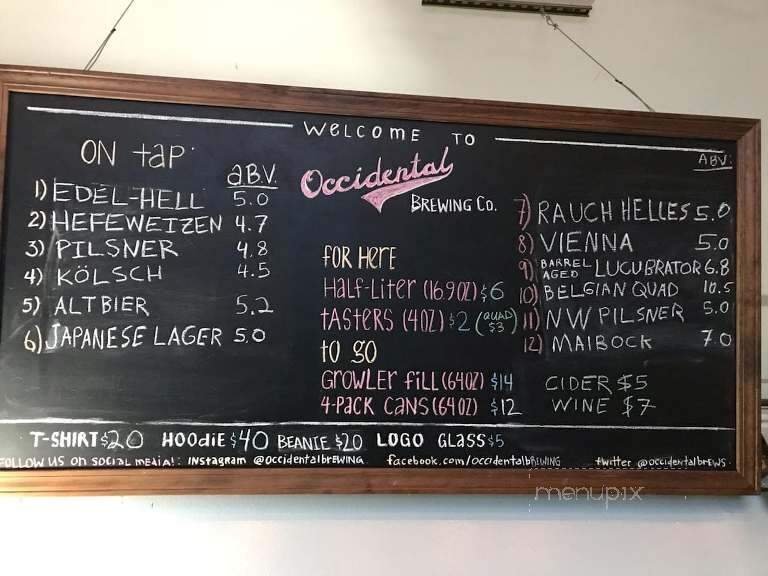 WELCOME TO
Occidental
BREWING Co.
ON tap
aBV.
1) EDEL-HELL 5.0
2) HEFEWEIZEN 4.7
3) PILSNER 4.8
4) KÖLSCH 4.5
5) ALTBIER 5.2
6) JAPANESE LAGER 5.0
FOR HERE
Half-Liter (16.9OZ) $6
tasters (4OZ) $2 (QUAD $3)
to go
Growler fill (64OZ) $14
4-Pack cans (64OZ) $12
ABV:
7) RAUCH HELLES 5.0
8) VIENNA 5.0
9) BARREL AGED LUCUBRATOR 6.8
10) BELGIAN QUAD 10.5
11) NW PILSNER 5.0
12) MAIBOCK 7.0
CIDER $5
WINE $7
T-SHIRT $20 HOODIE $40 BEANIE $20 LOGO GLASS $5
FOLLOW US on SOCIAL MEDIA!: INStagram @OCCIDENTALbREWING facebook.com/occidentalbREWING twitter @occidentalbrEWS
menupix